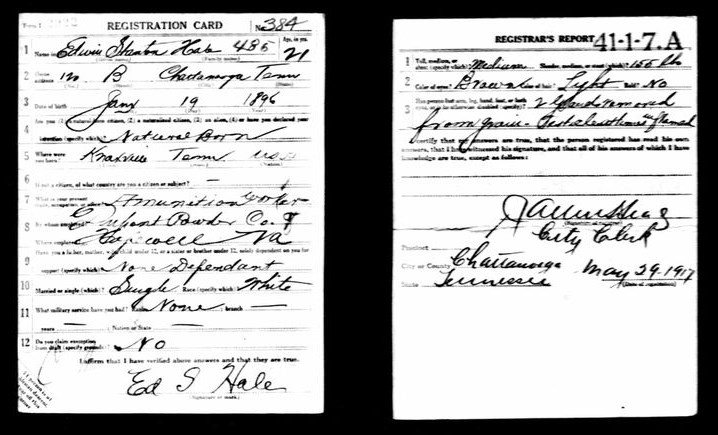 REGISTRATION CARD No 384
1 Name in full Edwin Stanton Hale 485 Age, in yrs. 21
2 Home address B Chattanooga Tenn
3 Date of birth Jany 19 1896
Are you (1) a natural born citizen, (2) a naturalized citizen, (3) an alien, (4) or have you declared your
4 intention (specify which)? Natural Born
5 Where were you born? Knoxville Tenn
6 If not a citizen, of what country are you a citizen or subject? —
7 What is your present trade, occupation, or office? Amunition Worker
8 By whom employed? Powder Co.
Where employed? Hopewell Va
9 Have you a father, mother, wife, child under 12, or a sister or brother under 12, solely dependent on you for
support (specify which)? None Dependant
10 Married or single (which)? Single Race (specify which)? White
11 What military service have you had? Rank None ; branch —
years — ; Nation or State —
12 Do you claim exemption from draft (specify grounds)? No
I affirm that I have verified above answers and that they are true.
Ed S Hale
(Signature or mark)
REGISTRAR'S REPORT 41-1-7.A
1 Tall, medium, or short (specify which)? Medium Slender, medium, or stout (which)? 155 lbs
2 Color of eyes? Brown Color of hair? Lyht Bald? No
3 Has person lost arm, leg, hand, foot, or both eyes, or is he otherwise disabled (specify)? 2 removed
from
I certify that my answers are true, that the person registered has read his own
answers, that I have witnessed his signature, and that all of his answers of which I have
knowledge are true, except as follows:
City Clerk
Precinct
City or County Chattanooga May 29. 1917
State Tennessee (Date of registration)